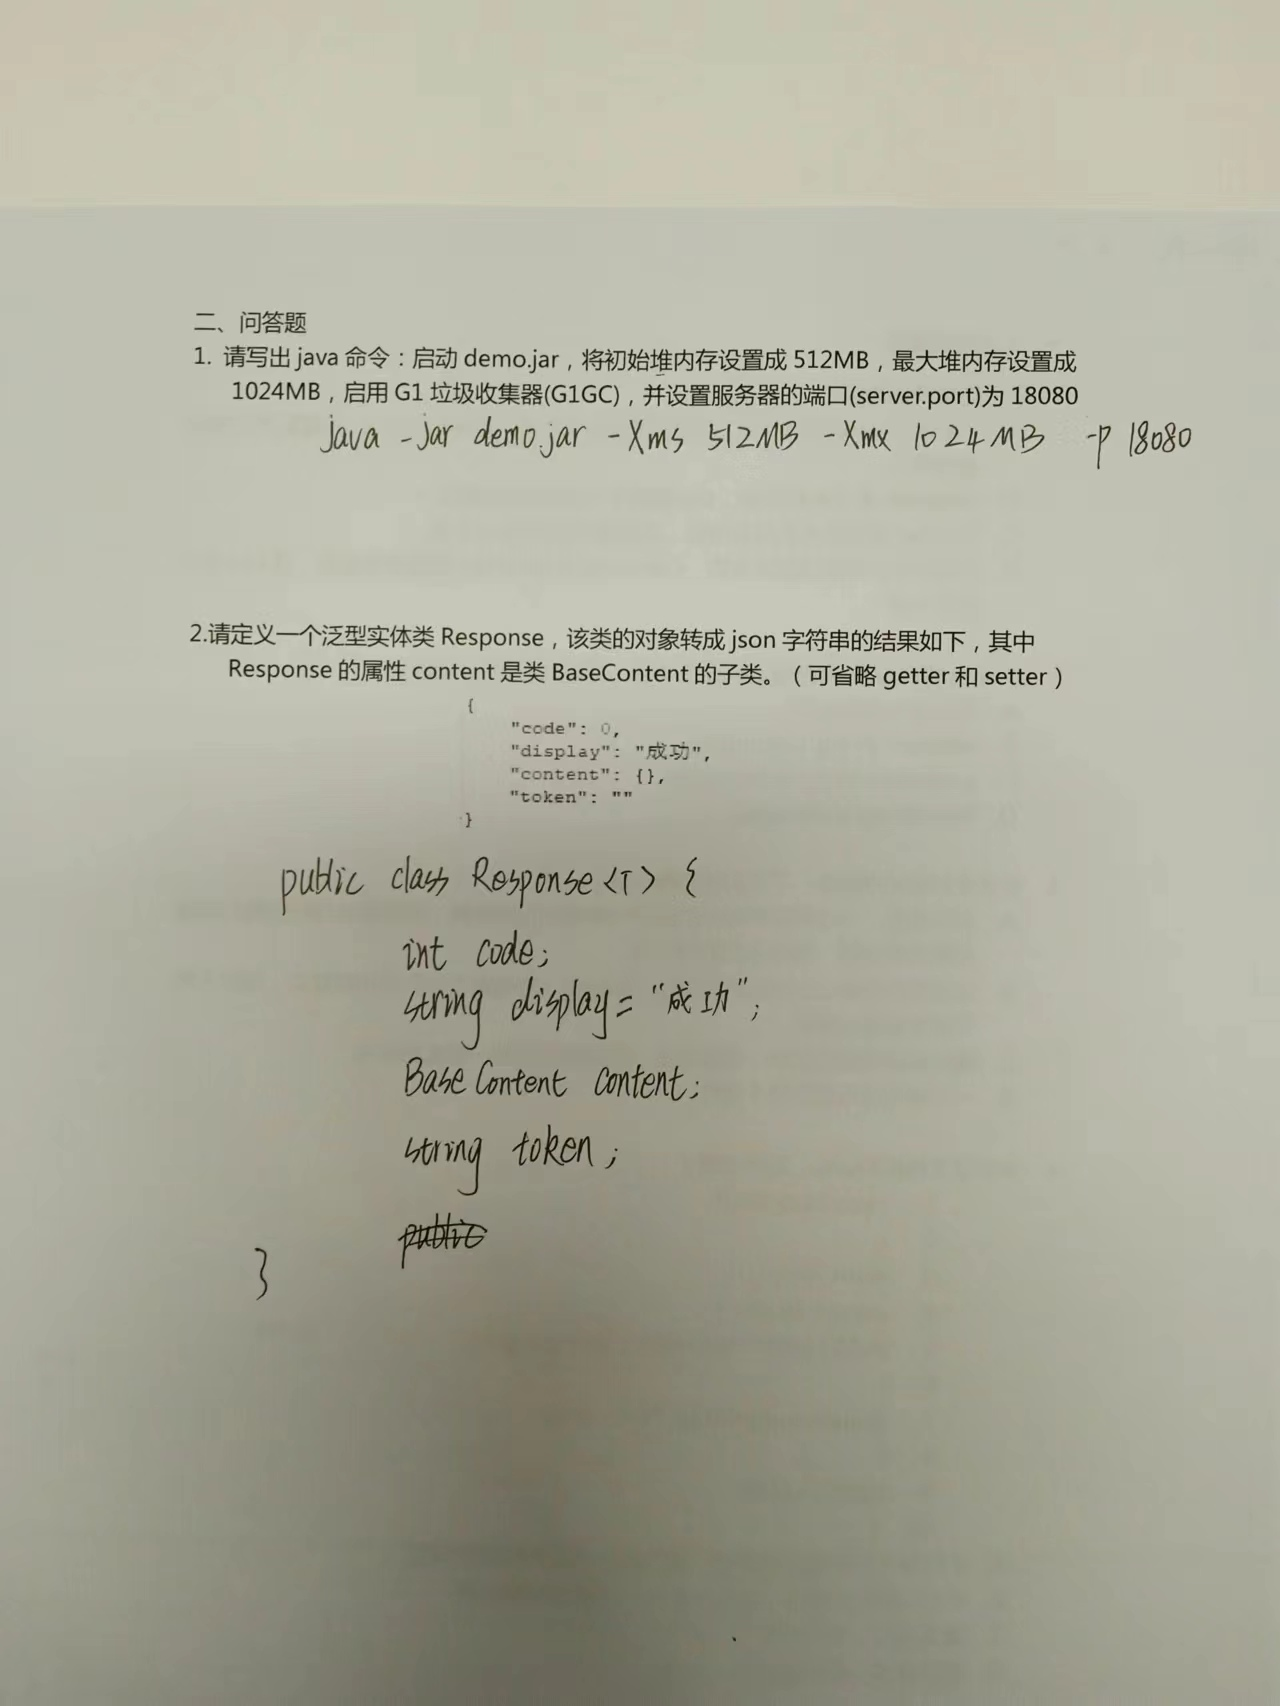 二、问答题
1. 请写出 java 命令：启动 demo.jar，将初始堆内存设置成 512MB，最大堆内存设置成
1024MB，启用 G1 垃圾收集器(G1GC)，并设置服务器的端口(server.port)为 18080
java -jar demo.jar -Xms 512MB -Xmx 1024MB -p 18080
2.请定义一个泛型实体类 Response，该类的对象转成 json 字符串的结果如下，其中
Response 的属性 content 是类 BaseContent 的子类。（可省略 getter 和 setter）
{
"code": 0,
"display": "成功",
"content": {},
"token": ""
}
public class Response <T> {
int code;
string display = "成功";
BaseContent content;
string token;
public
}